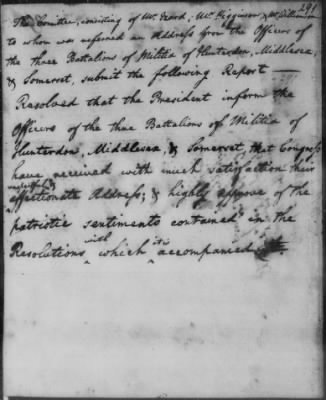 291
The Committee, consisting of Mr. Izard, Mr. Higginson & Mr. Williamson
to whom was referred an Address from the Officers of
the three Battalions of Militia of Hunterdon, Middlesex,
& Somerset, submit the following Report
Resolved that the President inform the
Officers of the three Battalions of Militia of
Hunterdon, Middlesex, & Somerset, that Congress
have received with much satisfaction their
respectful &
affectionate Address; & highly approve of the
patriotic sentiments contained in the
Resolutions with which it is accompanied